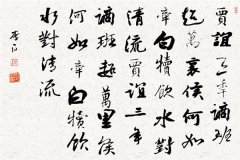 賈誼三年謫班
超萬裏侯何如
牽白犢飲水對
清流賈誼三年
謫班超萬里侯
何如牽白犢飲
水對清流